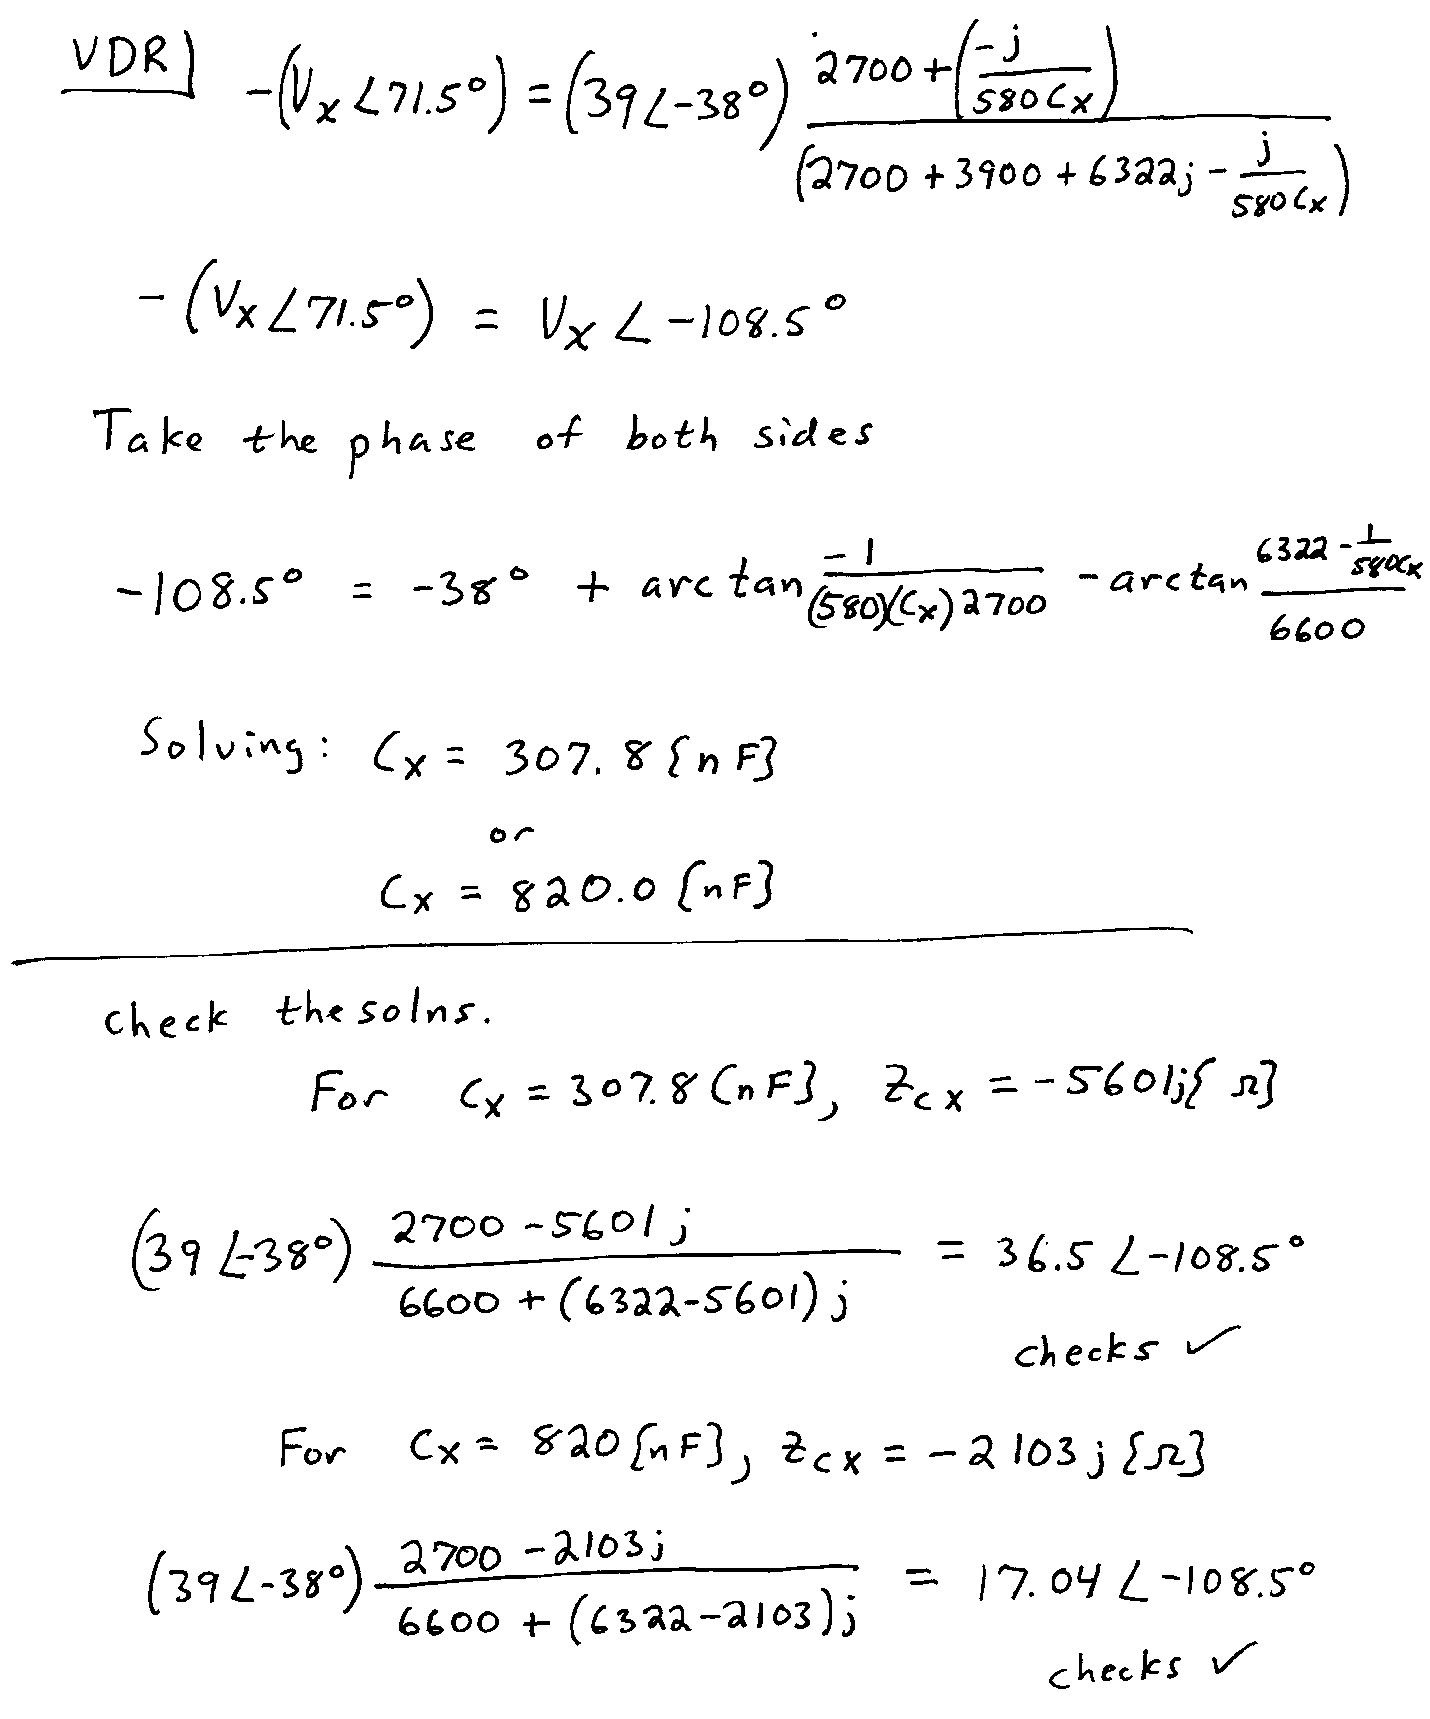 VDR) -(Vx∠71.5°) = (39∠-38°) (2700 + (-j/(580Cx))) / (2700 + 3900 + 6322j - j/(580Cx))
-(Vx∠71.5°) = Vx∠-108.5°
Take the phase of both sides
-108.5° = -38° + arctan -1/((580)(Cx)2700) - arctan (6322 - 1/(580Cx))/6600
Solving: Cx = 307.8 [nF]
or
Cx = 820.0 [nF]
check the solns.
For Cx = 307.8 [nF], Zcx = -5601j[Ω]
(39∠-38°) (2700 - 5601j)/(6600 + (6322-5601)j) = 36.5∠-108.5°
checks ✓
For Cx = 820 [nF], Zcx = -2103j [Ω]
(39∠-38°) (2700 - 2103j)/(6600 + (6322-2103)j) = 17.04∠-108.5°
checks ✓